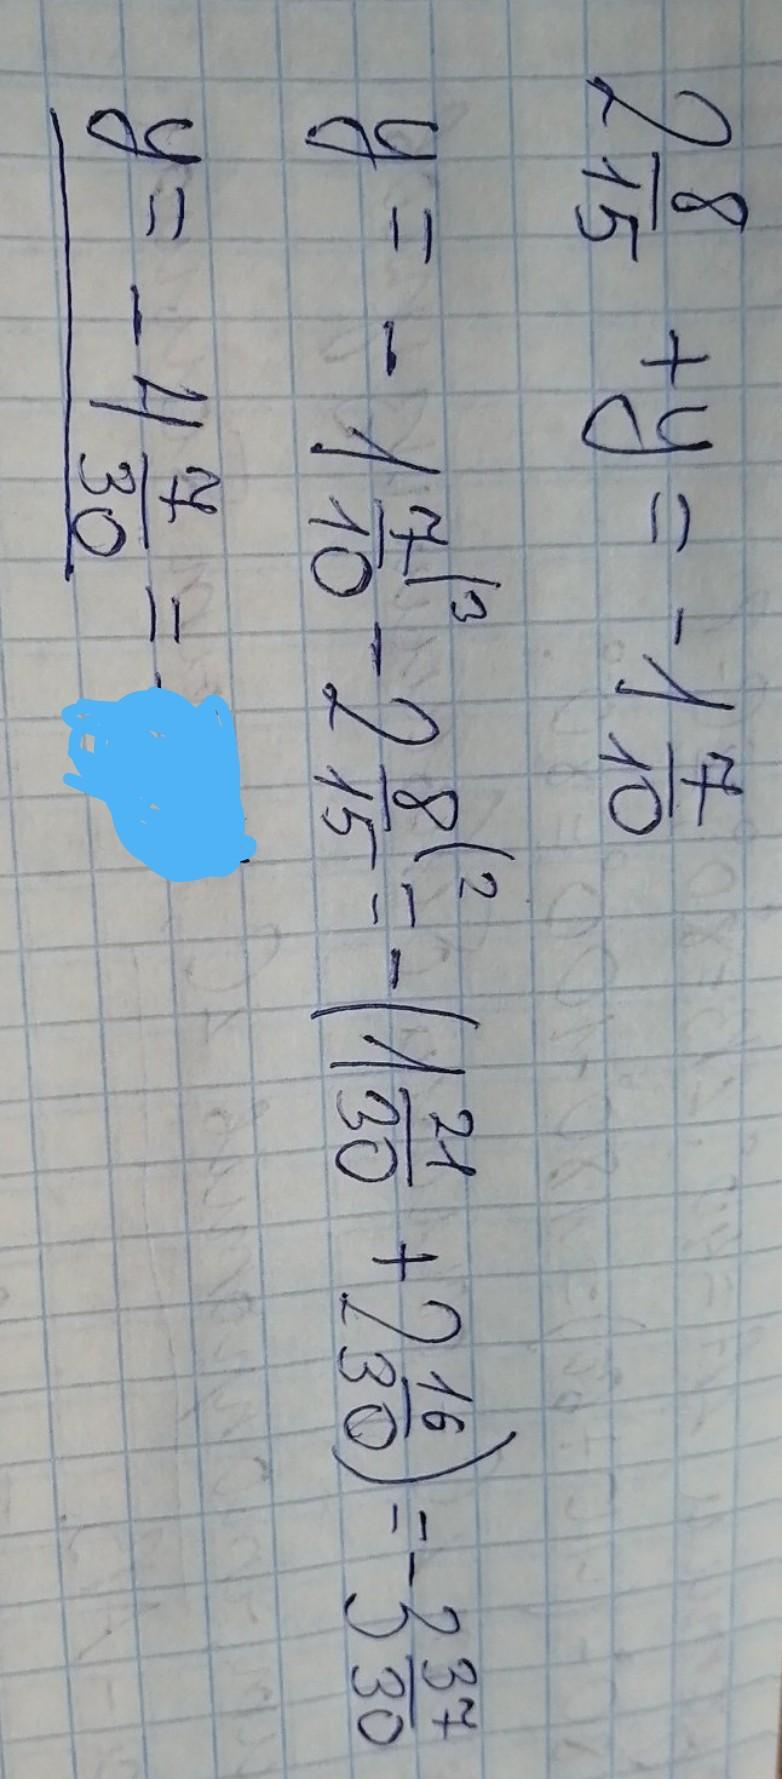 2 8/15 + y = - 1 7/10
y = - 1 7/10 (3 - 2 8/15 (2 = - (1 21/30 + 2 16/30) = - 3 37/30
y = - 4 7/30 = -